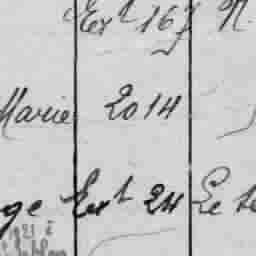 Ext 167 N.
Marie 2014
ge Ext 24 Le